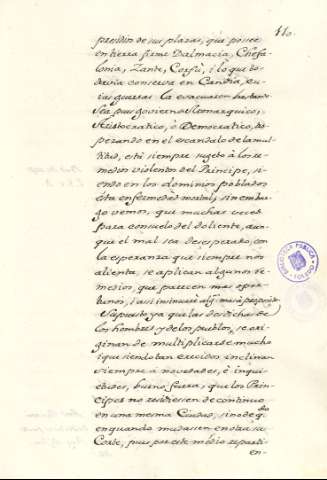 110.
presidio de sus plazas, que posee
en tierra firme Dalmacia, Chefa-
lonia, Zante, Corfú, i lo que to-
davia conserva en Candia, cu-
ias guerras la evacuaron bastante
Sea pues govierno Monarquico,
Aristocratico, ò Democratico,
perando en el escandalo de la mul-
titud, está siempre sugeto à los re-
medios violentos del Principe, si-
endo en los dominios poblados
esta enfermedad mortal; sin embar-
go vemos, que muchas veces
para consuelo del doliente, aun-
que el mal sea desesperado, con
la esperanza que siempre nos
alienta, se aplican algunos re-
medios, que parecen mas opor-
tunos, i assi insinuaré alg. mas à proposito
Supuesto ya que las desdichas de
los hombres, y de los pueblos, se ori-
ginan de multiplicarse mucho
i que siendo tan crecidos inclinan
siempre à novedades, è inqui-
etudes, bueno fuera, que los Prin-
cipes no residiessen de continuo
en una mesma Ciudad, sino de q.do
en quando mudassen en otra su
Corte, pues por este medio reparti-
en-
BIBLIOTECA PUBLICA
TOLEDO